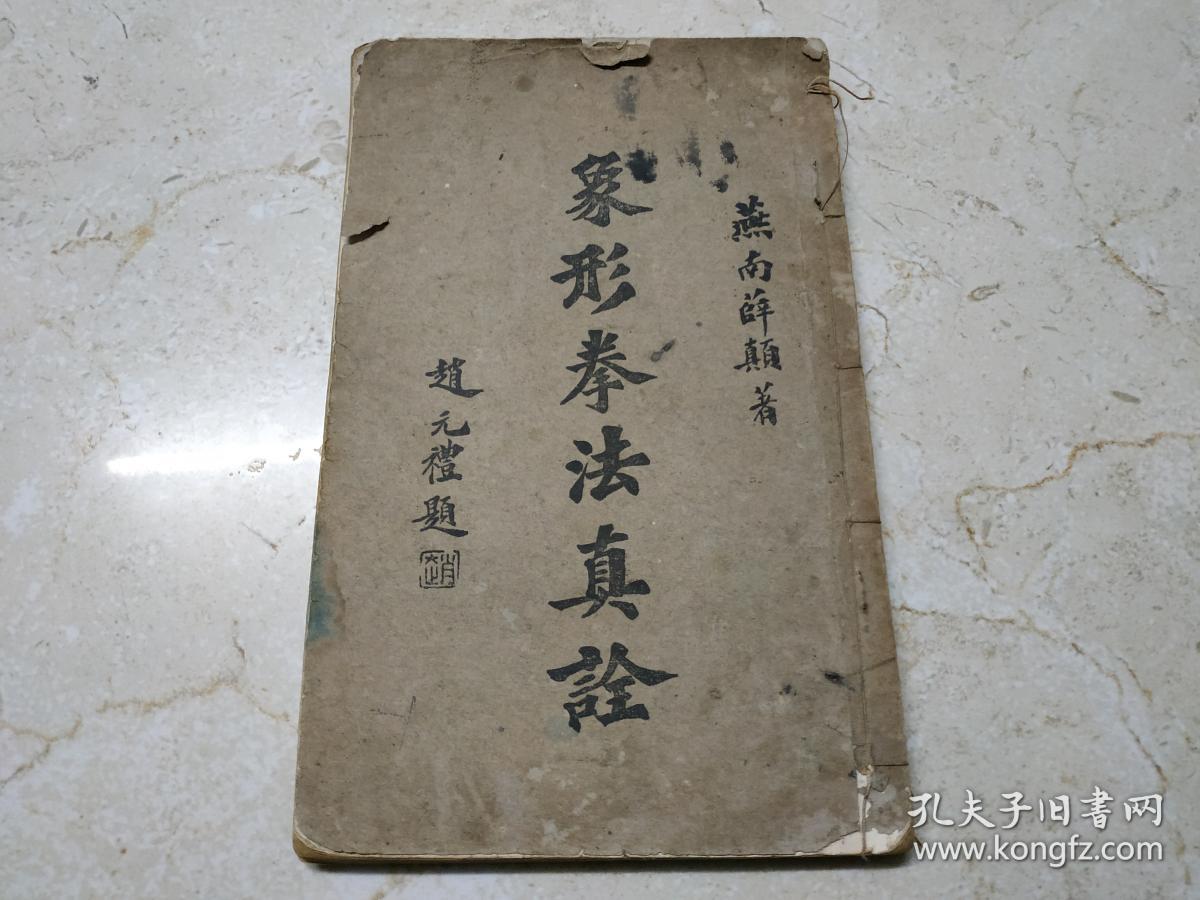 燕南薛顛著
象形拳法真詮
趙元禮題
趙
孔夫子旧书网
www.kongfz.com